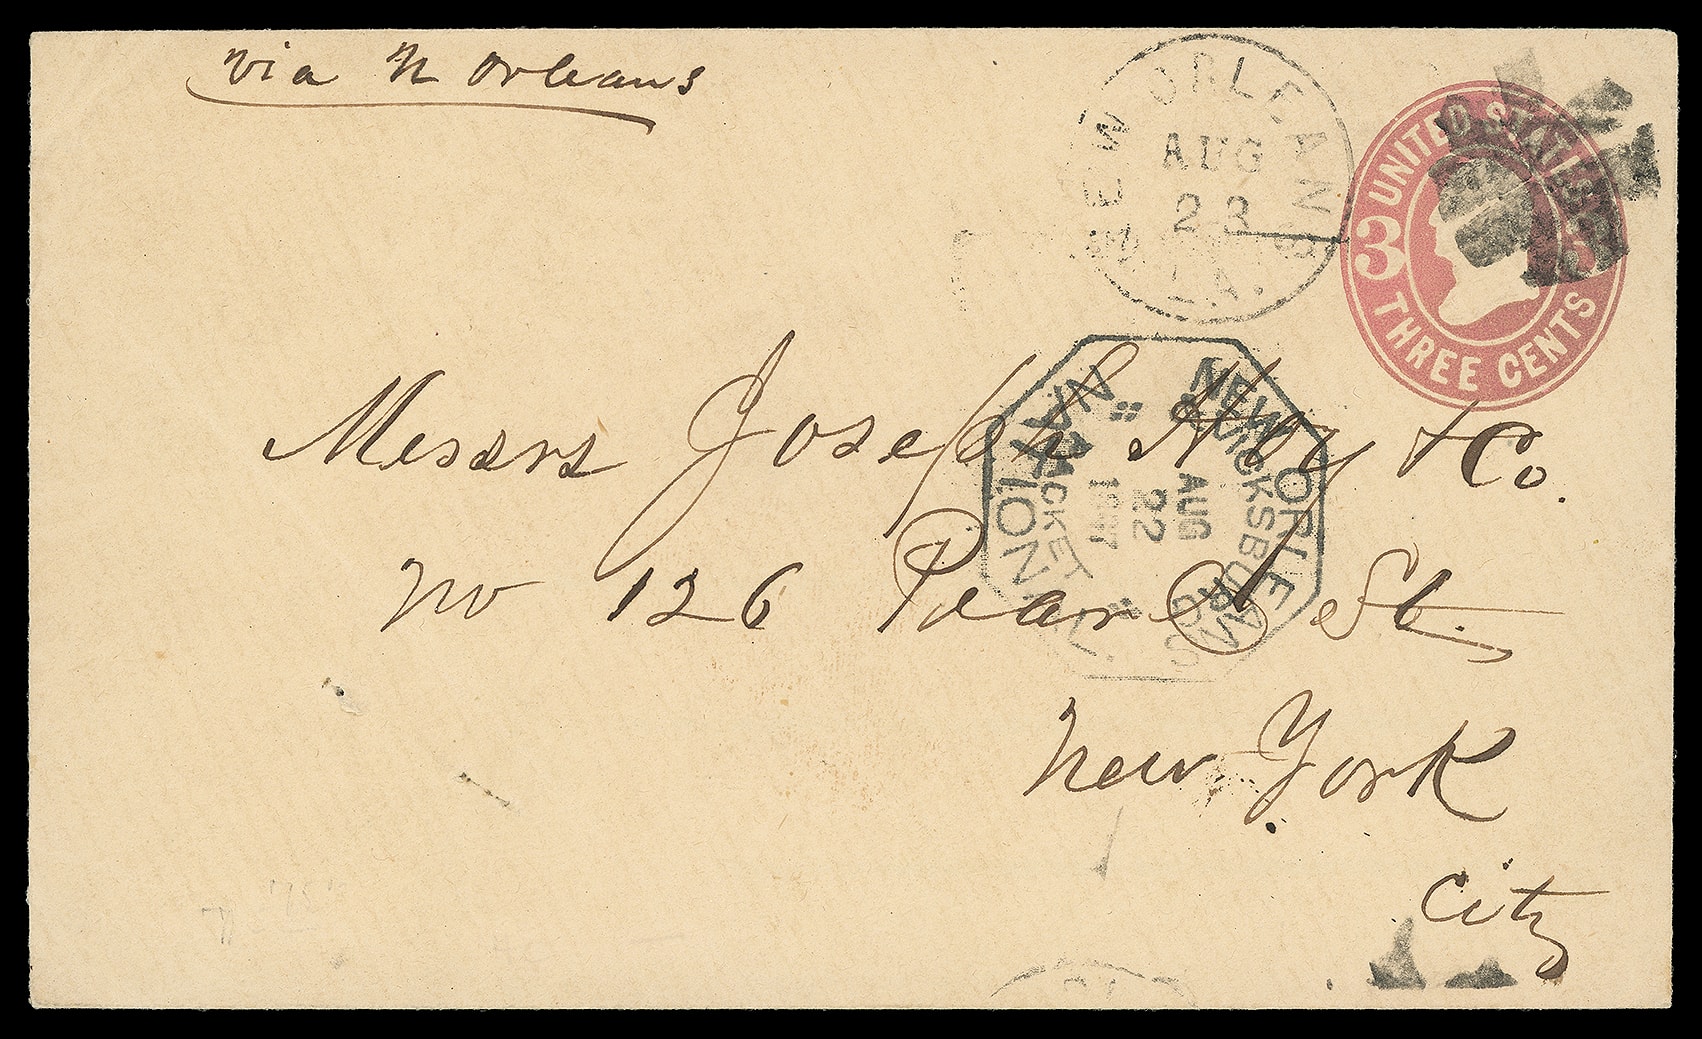 via N Orleans
NEW ORLEANS
AUG
23
LA.
UNITED STATES
3 3
THREE CENTS
NEW ORLEANS
& VICKSBURG
AUG
22
PACKET
Messrs Joseph Hoy & Co.
No 126 Pearl St.
New York
City